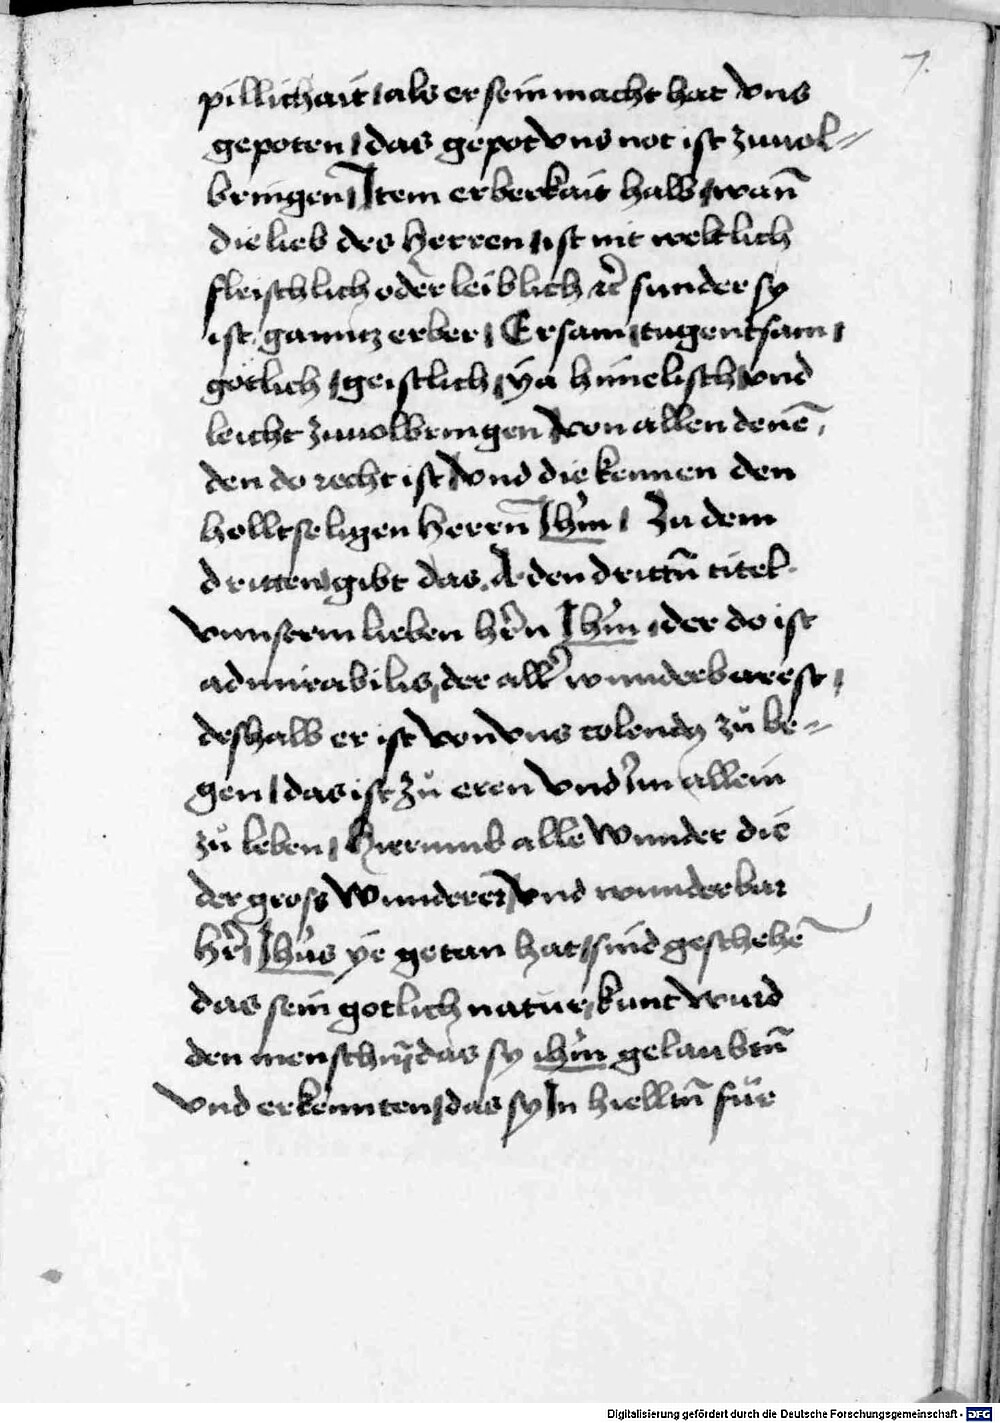 7.
pillichait / als er sein macht hat vns
gepoten / das gepot vns not ist zuuol=
bringen / Item erberkait halb / wañ
die lieb des herren / ist nit weltlich
fleischlich oder leiblich ꝛc̃ sunder sy
ist ganntz erber / Ersam / tugentsam /
gotlich / geistlich / ÿa himelisch / vnd
leicht zuuolbringen / von allen denē /
den do recht ist / vnd die kennen den
holltseligen herrñ Ih̃m / Zu dem
dritten / gibt das .A. den drittñ titel
vnnserm lieben hr̃n Ih̃m / der do ist
admirabilis / der all' wunderbarest /
deshalb er ist von vns colendꝰ zů be=
gen / das ist zů eren vnd im allein
zů leben / hierumb alle wunder die
der gross wunderer / vnd wunderbar
hr̃ Ih̃us ye getan hat / sind geschehē
das sein gotlich natur / kunt wurd
den menschñ / das sy ih̃m gelaubtñ
vnd erkennten / das sy In hielltñ für
Digitalisierung gefördert durch die Deutsche Forschungsgemeinschaft - DFG